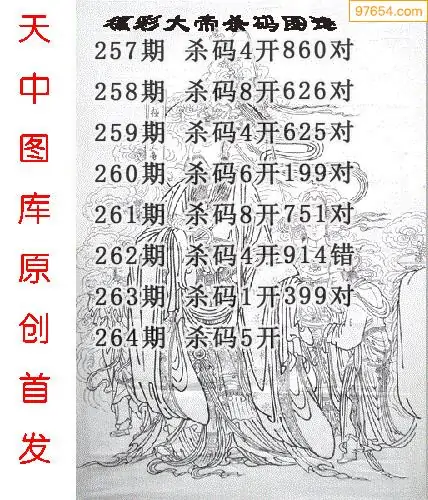 97654.com
福彩大帝杀码图迷
257期 杀码4开860对
258期 杀码8开626对
259期 杀码4开625对
260期 杀码6开199对
261期 杀码8开751对
262期 杀码4开914错
263期 杀码1开399对
264期 杀码5开
天中图库原创首发